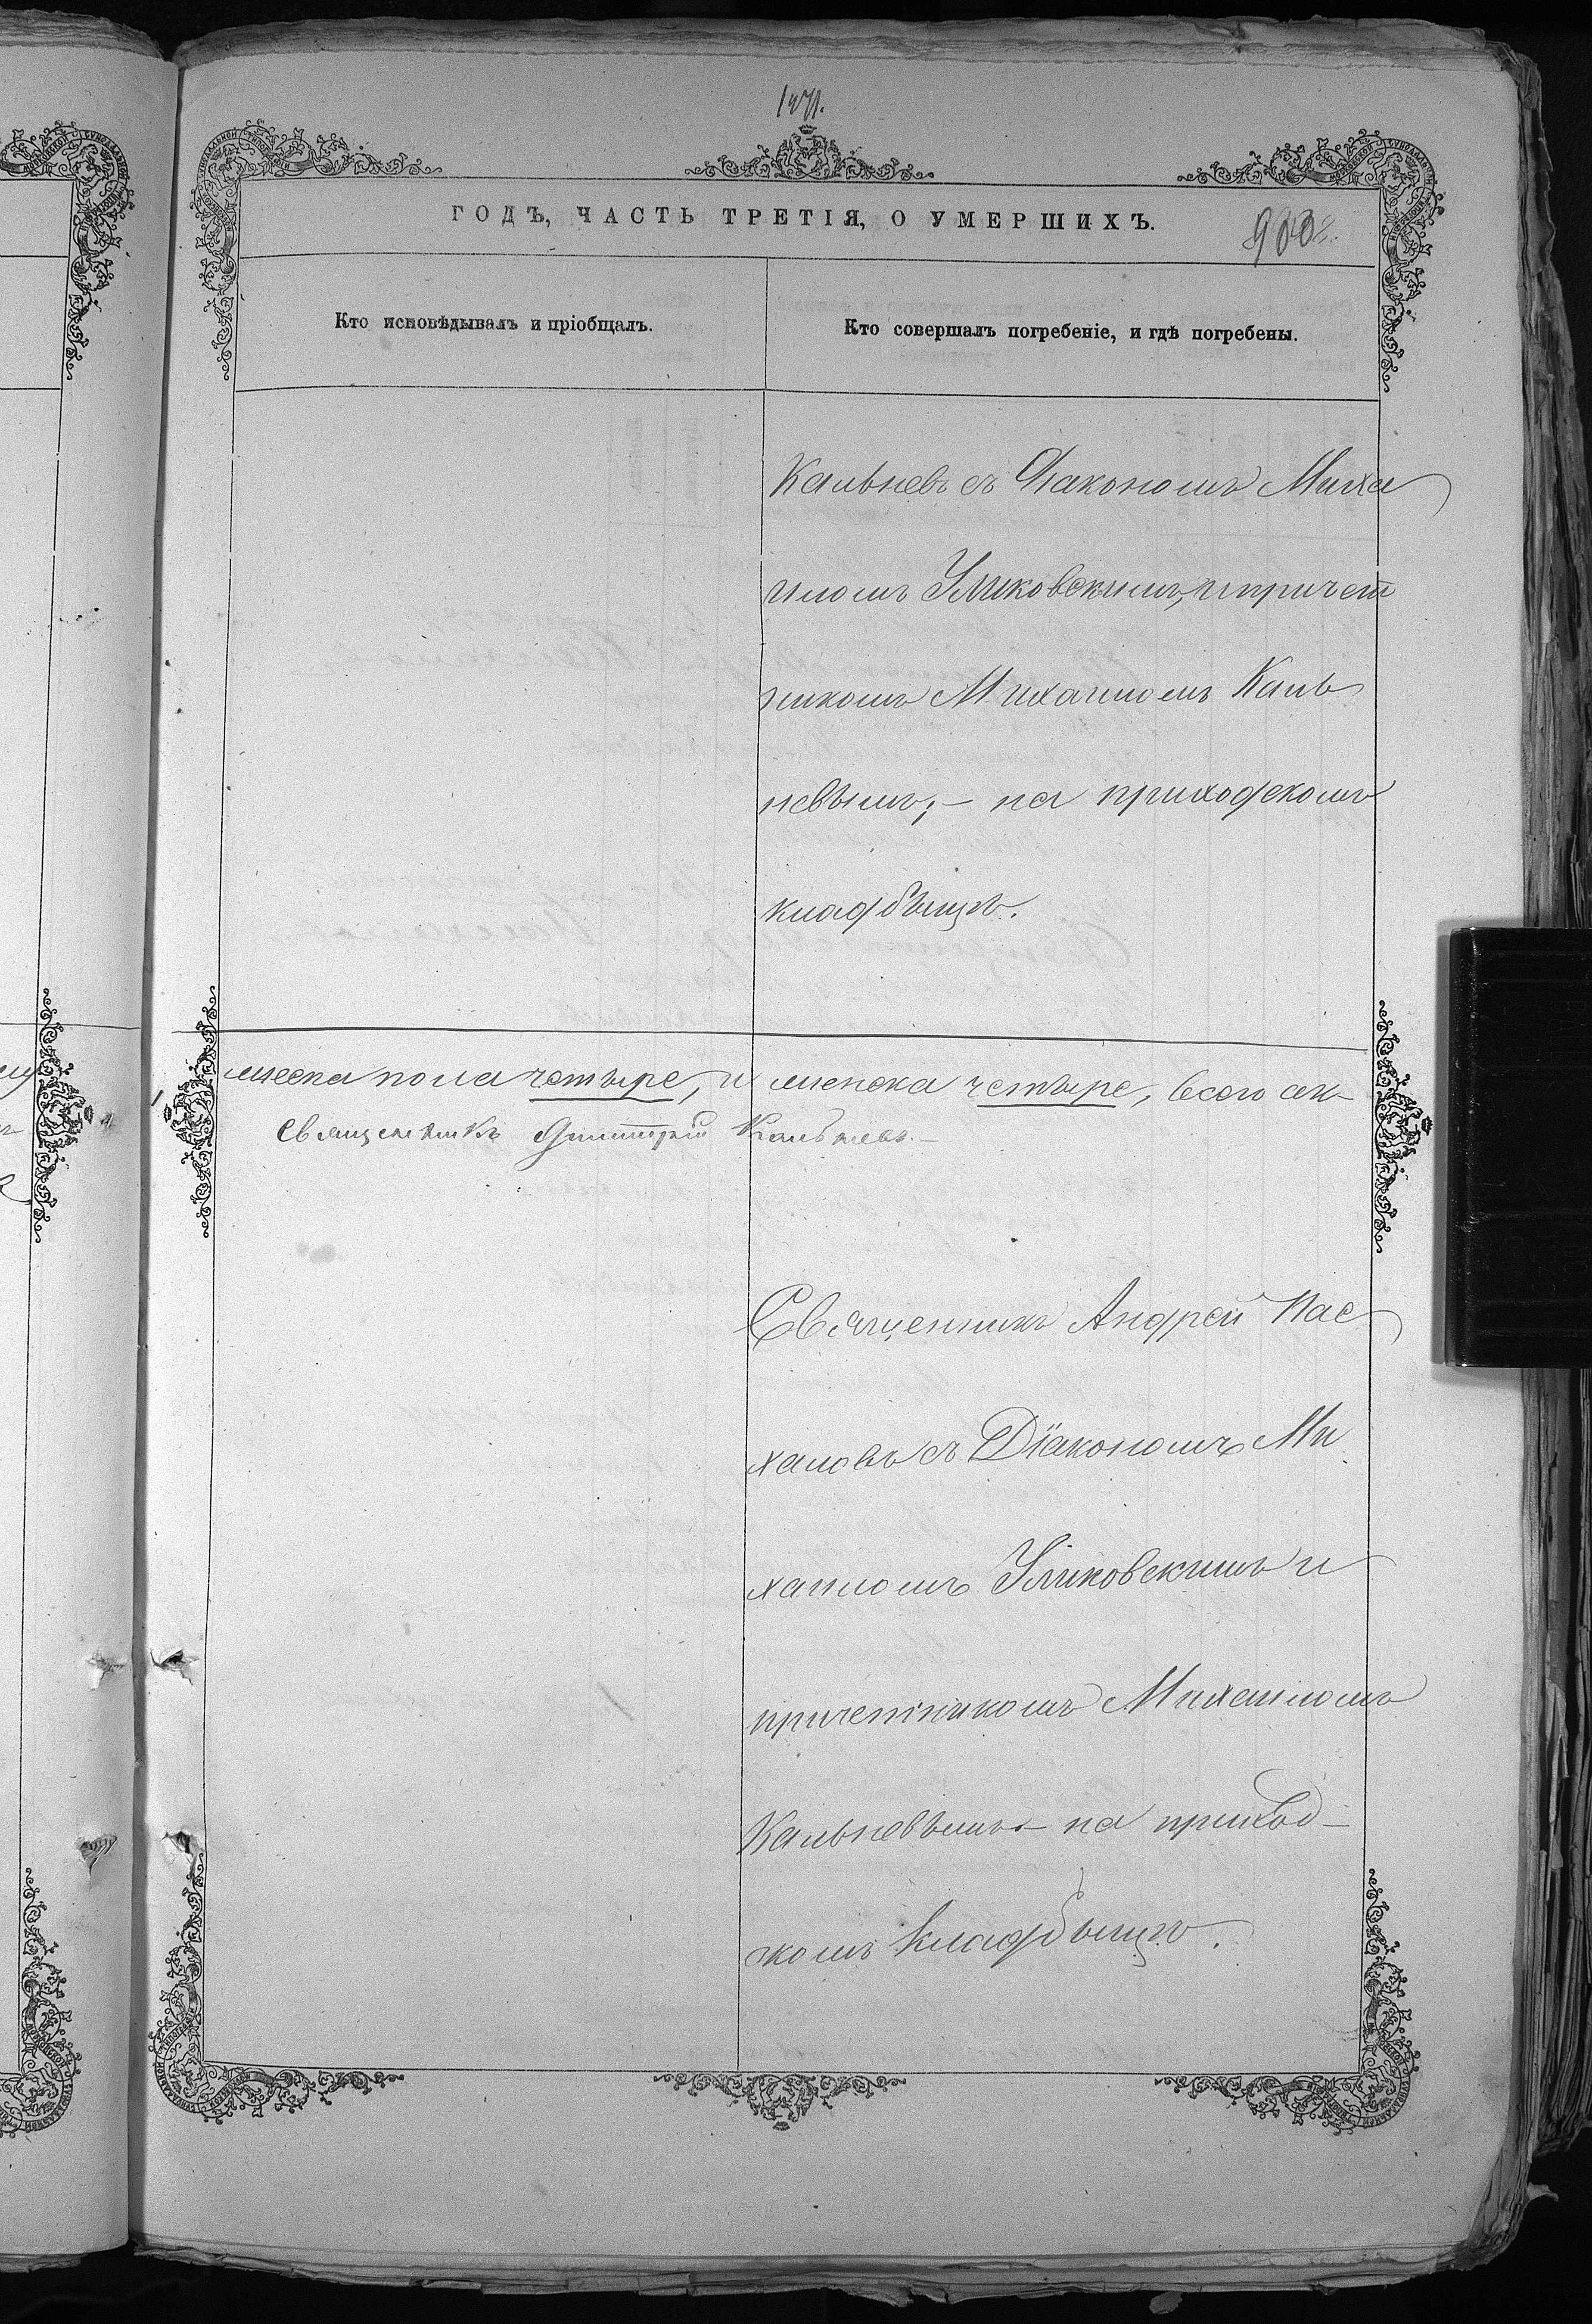 ГОДЪ, ЧАСТЬ ТРЕТІЯ, О УМЕРШИХЪ.
Кто исповѣдывалъ и пріобщалъ.
Кто совершалъ погребеніе, и гдѣ погребены.
Кальневъ съ Діакономъ Миха
иломъ Уликовскимъ, и причет
никомъ Михаиломъ Каль
невымъ; – на приходскомъ
кладбищѣ.
мужеска пола четыре, и женска четыре, всего
Священникъ Димитрій Кальневъ. –
Священникъ Андрей Пас
халовъ съ Діакономъ Ми
хаиломъ Уликовскимъ и
причетникомъ Михаиломъ
Кальневымъ – на приход–
комъ кладбищѣ.